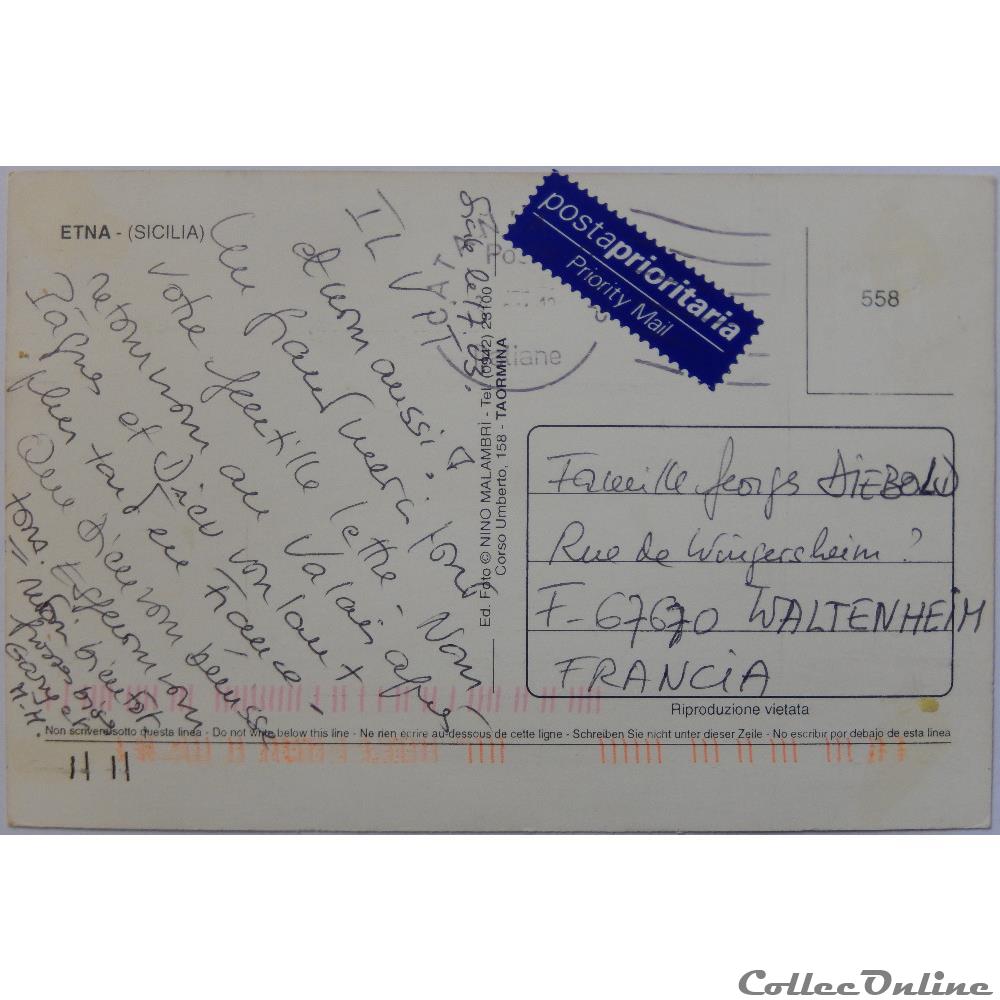 ETNA - (SICILIA)
Sicile le 17.03.
IL VPT
et vom aussi!
Un grand merci pour
votre gentille lettre. Nous
retournons au Valais après
Pâques et Dieu voulant
plus tard en France.
Que Dieu vous bénisse
tous. Espérons vous
revoir bientôt.
Grosses bises
Gary et
M-H.
Ed. Foto © NINO MALAMBRÌ - Tel. (0942) 23100
Corso Umberto, 158 - TAORMINA
postaprioritaria
Priority Mail
Pos
liane
558
Famille Georges DIEBOLD
Rue de Wingersheim ?
F-67670 WALTENHEIM
FRANCIA
Riproduzione vietata
Non scrivere sotto questa linea - Do not write below this line - Ne rien écrire au-dessous de cette ligne - Schreiben Sie nicht unter dieser Zeile - No escribir por debajo de esta linea
CollecOnline